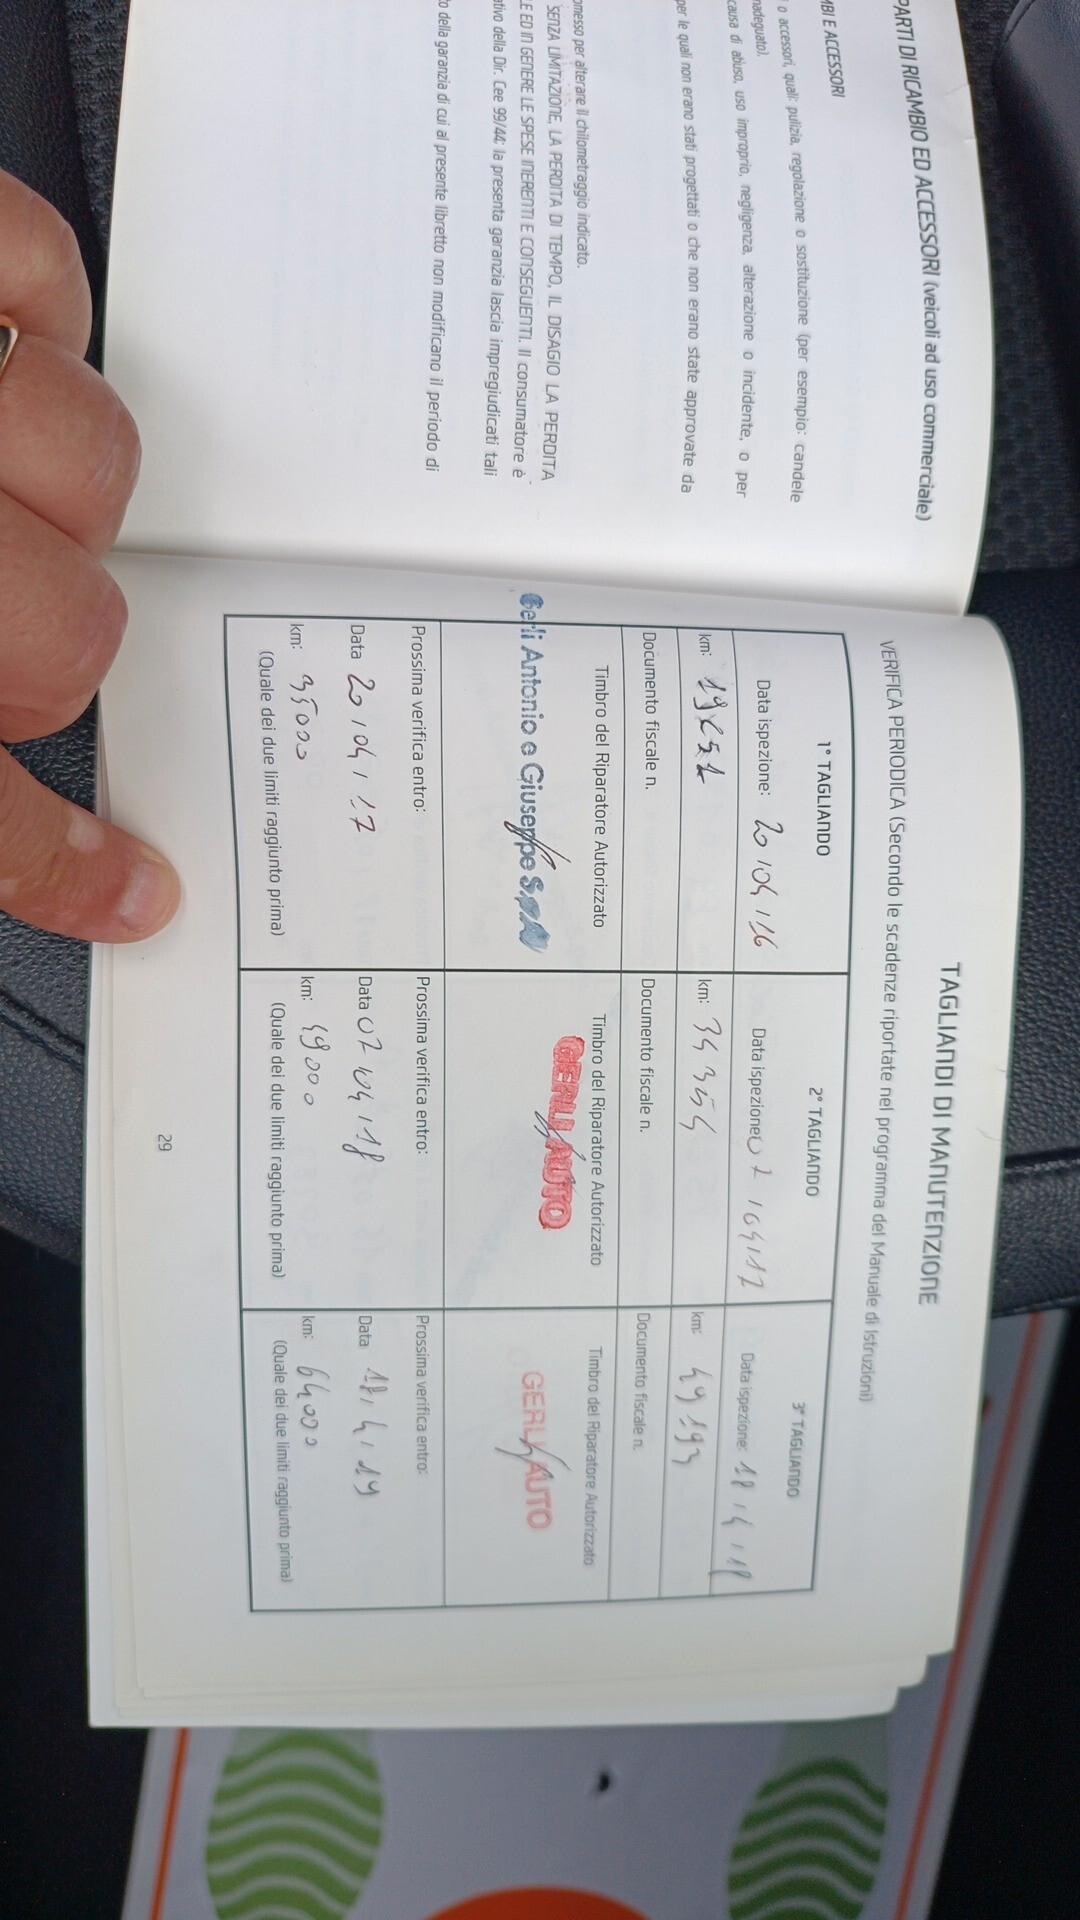 PARTI DI RICAMBIO ED ACCESSORI (veicoli ad uso commerciale)
MBI E ACCESSORI
o accessori, quali: pulizia, regolazione o sostituzione (per esempio: candele
nadeguato).
causa di abuso, uso improprio, negligenza, alterazione o incidente, o per
per le quali non erano stati progettati o che non erano state approvate da
omesso per alterare il chilometraggio indicato.
SENZA LIMITAZIONE, LA PERDITA DI TEMPO, IL DISAGIO LA PERDITA
LE ED IN GENERE LE SPESE INERENTI E CONSEGUENTI. Il consumatore è
ativo della Dir. Cee 99/44: la presenta garanzia lascia impregiudicati tali
to della garanzia di cui al presente libretto non modificano il periodo di
TAGLIANDI DI MANUTENZIONE
VERIFICA PERIODICA (Secondo le scadenze riportate nel programma del Manuale di Istruzioni)
1° TAGLIANDO
Data ispezione: 20/04/16
km:
Documento fiscale n.
Timbro del Riparatore Autorizzato
Gerli Antonio e Giuseppe S.p.A
Prossima verifica entro:
Data 20/04/17
km: 35000
(Quale dei due limiti raggiunto prima)
2° TAGLIANDO
Data ispezione 07/04/17
km: 34354
Documento fiscale n.
Timbro del Riparatore Autorizzato
GERLI AUTO
Prossima verifica entro:
Data 07/04/18
km: 4900
(Quale dei due limiti raggiunto prima)
3° TAGLIANDO
Data ispezione: 18/4/18
km: 49193
Documento fiscale n.
Timbro del Riparatore Autorizzato
GERLI AUTO
Prossima verifica entro:
Data 18/4/19
km: 64000
(Quale dei due limiti raggiunto prima)
29